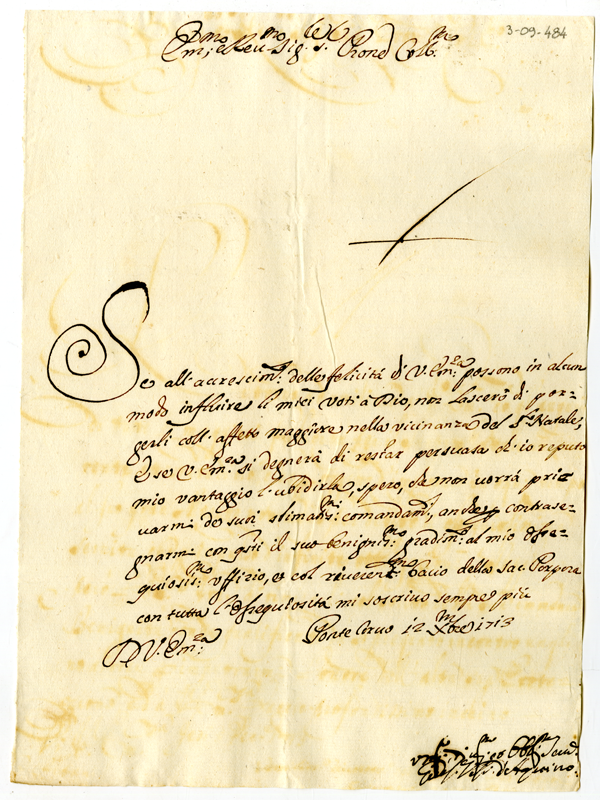 3-09-484
Em:mo e Rev:mo Sig:r Prone Col:mo
Se all'accrescim:to delle felicità di V. Em:za possono in alcun
modo influire li miei voti à Dio, non lascerò di por-
gerli coll'affetto maggiore nella vicinanza del S:to Natale,
E se V. Em:za si degnerà di restar persuasa ch'io reputo
mio vantaggio l'ubidirla, spero, che non vorrà pri-
varmi de suoi stimatis:mi comandam:ti, anche contrase-
gnarmi con q̃sti il suo benignis:mo gradim:to al mio osse-
quiosis:mo uffizio, e col riverent:mo bacio della sac. Porpora
con tutta l'ossequiosità mi soscrivo sempre più
D V. Em:za
Ponte Corvo 12 Xbre 1713
d'Aquino